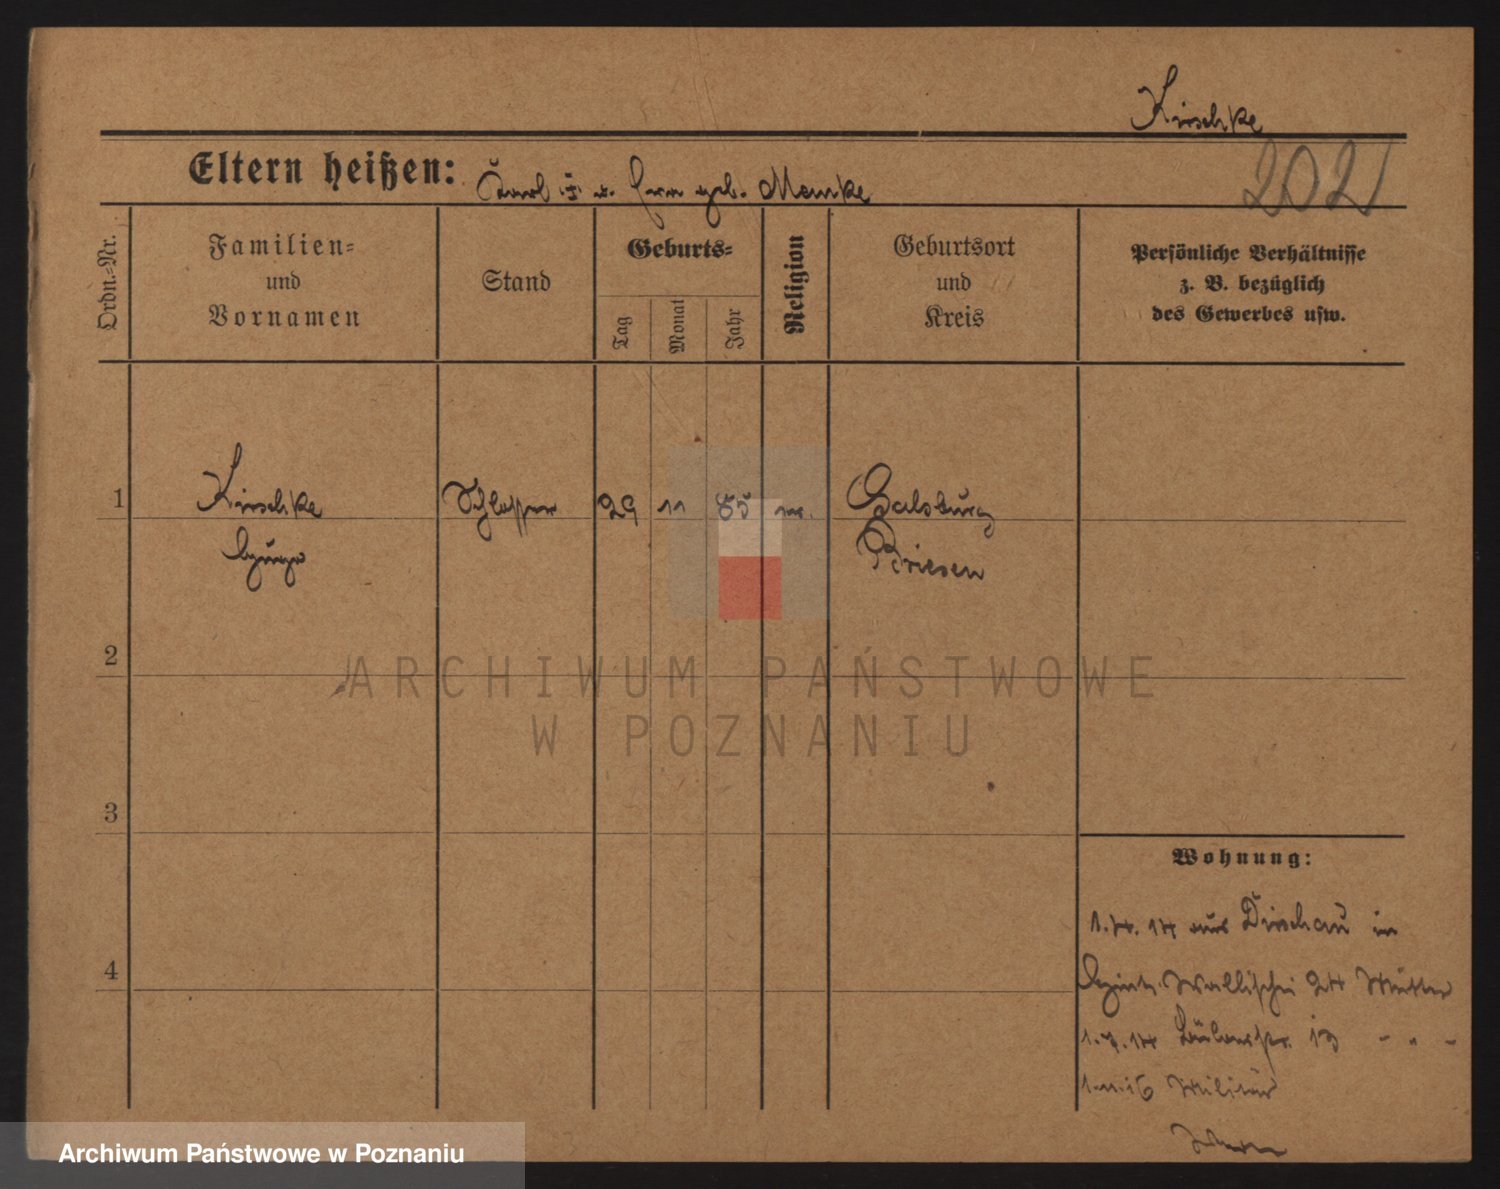 Kirschke
Eltern heißen: Karl u. geb. Manke
2021
Ordn.=Nr.
Familien=
und
Vornamen
Stand
Geburts=
Tag
Monat
Jahr
Religion
Geburtsort
und
Kreis
Persönliche Verhältnisse
z. B. bezüglich
des Gewerbes usw.
1 Kirschke Schlosser 29 11 85 Galsburg
Hugo Briesen
2
3
4
Wohnung:
1.4.14 aus Dirschau in
Wallischei 24 Mutter
1.7.14 13 - " -
1.11.15 Militär
ARCHIWUM PAŃSTWOWE
W POZNANIU
Archiwum Państwowe w Poznaniu